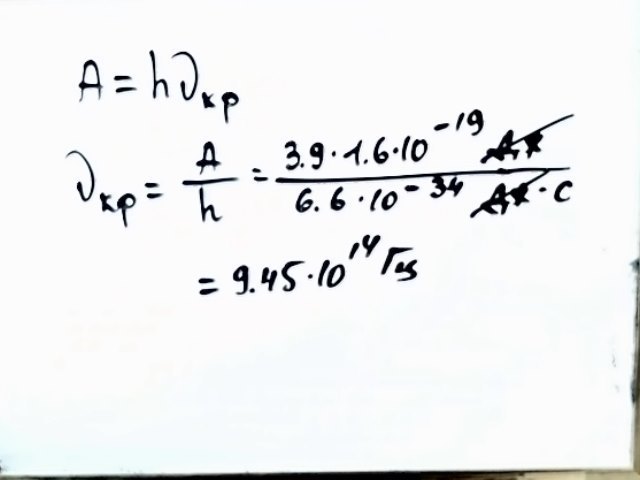 A = hν_кр
ν_кр = A/h = 3.9 · 1.6 · 10^-19 Дж / 6.6 · 10^-34 Дж · с
= 9.45 · 10^14 Гц